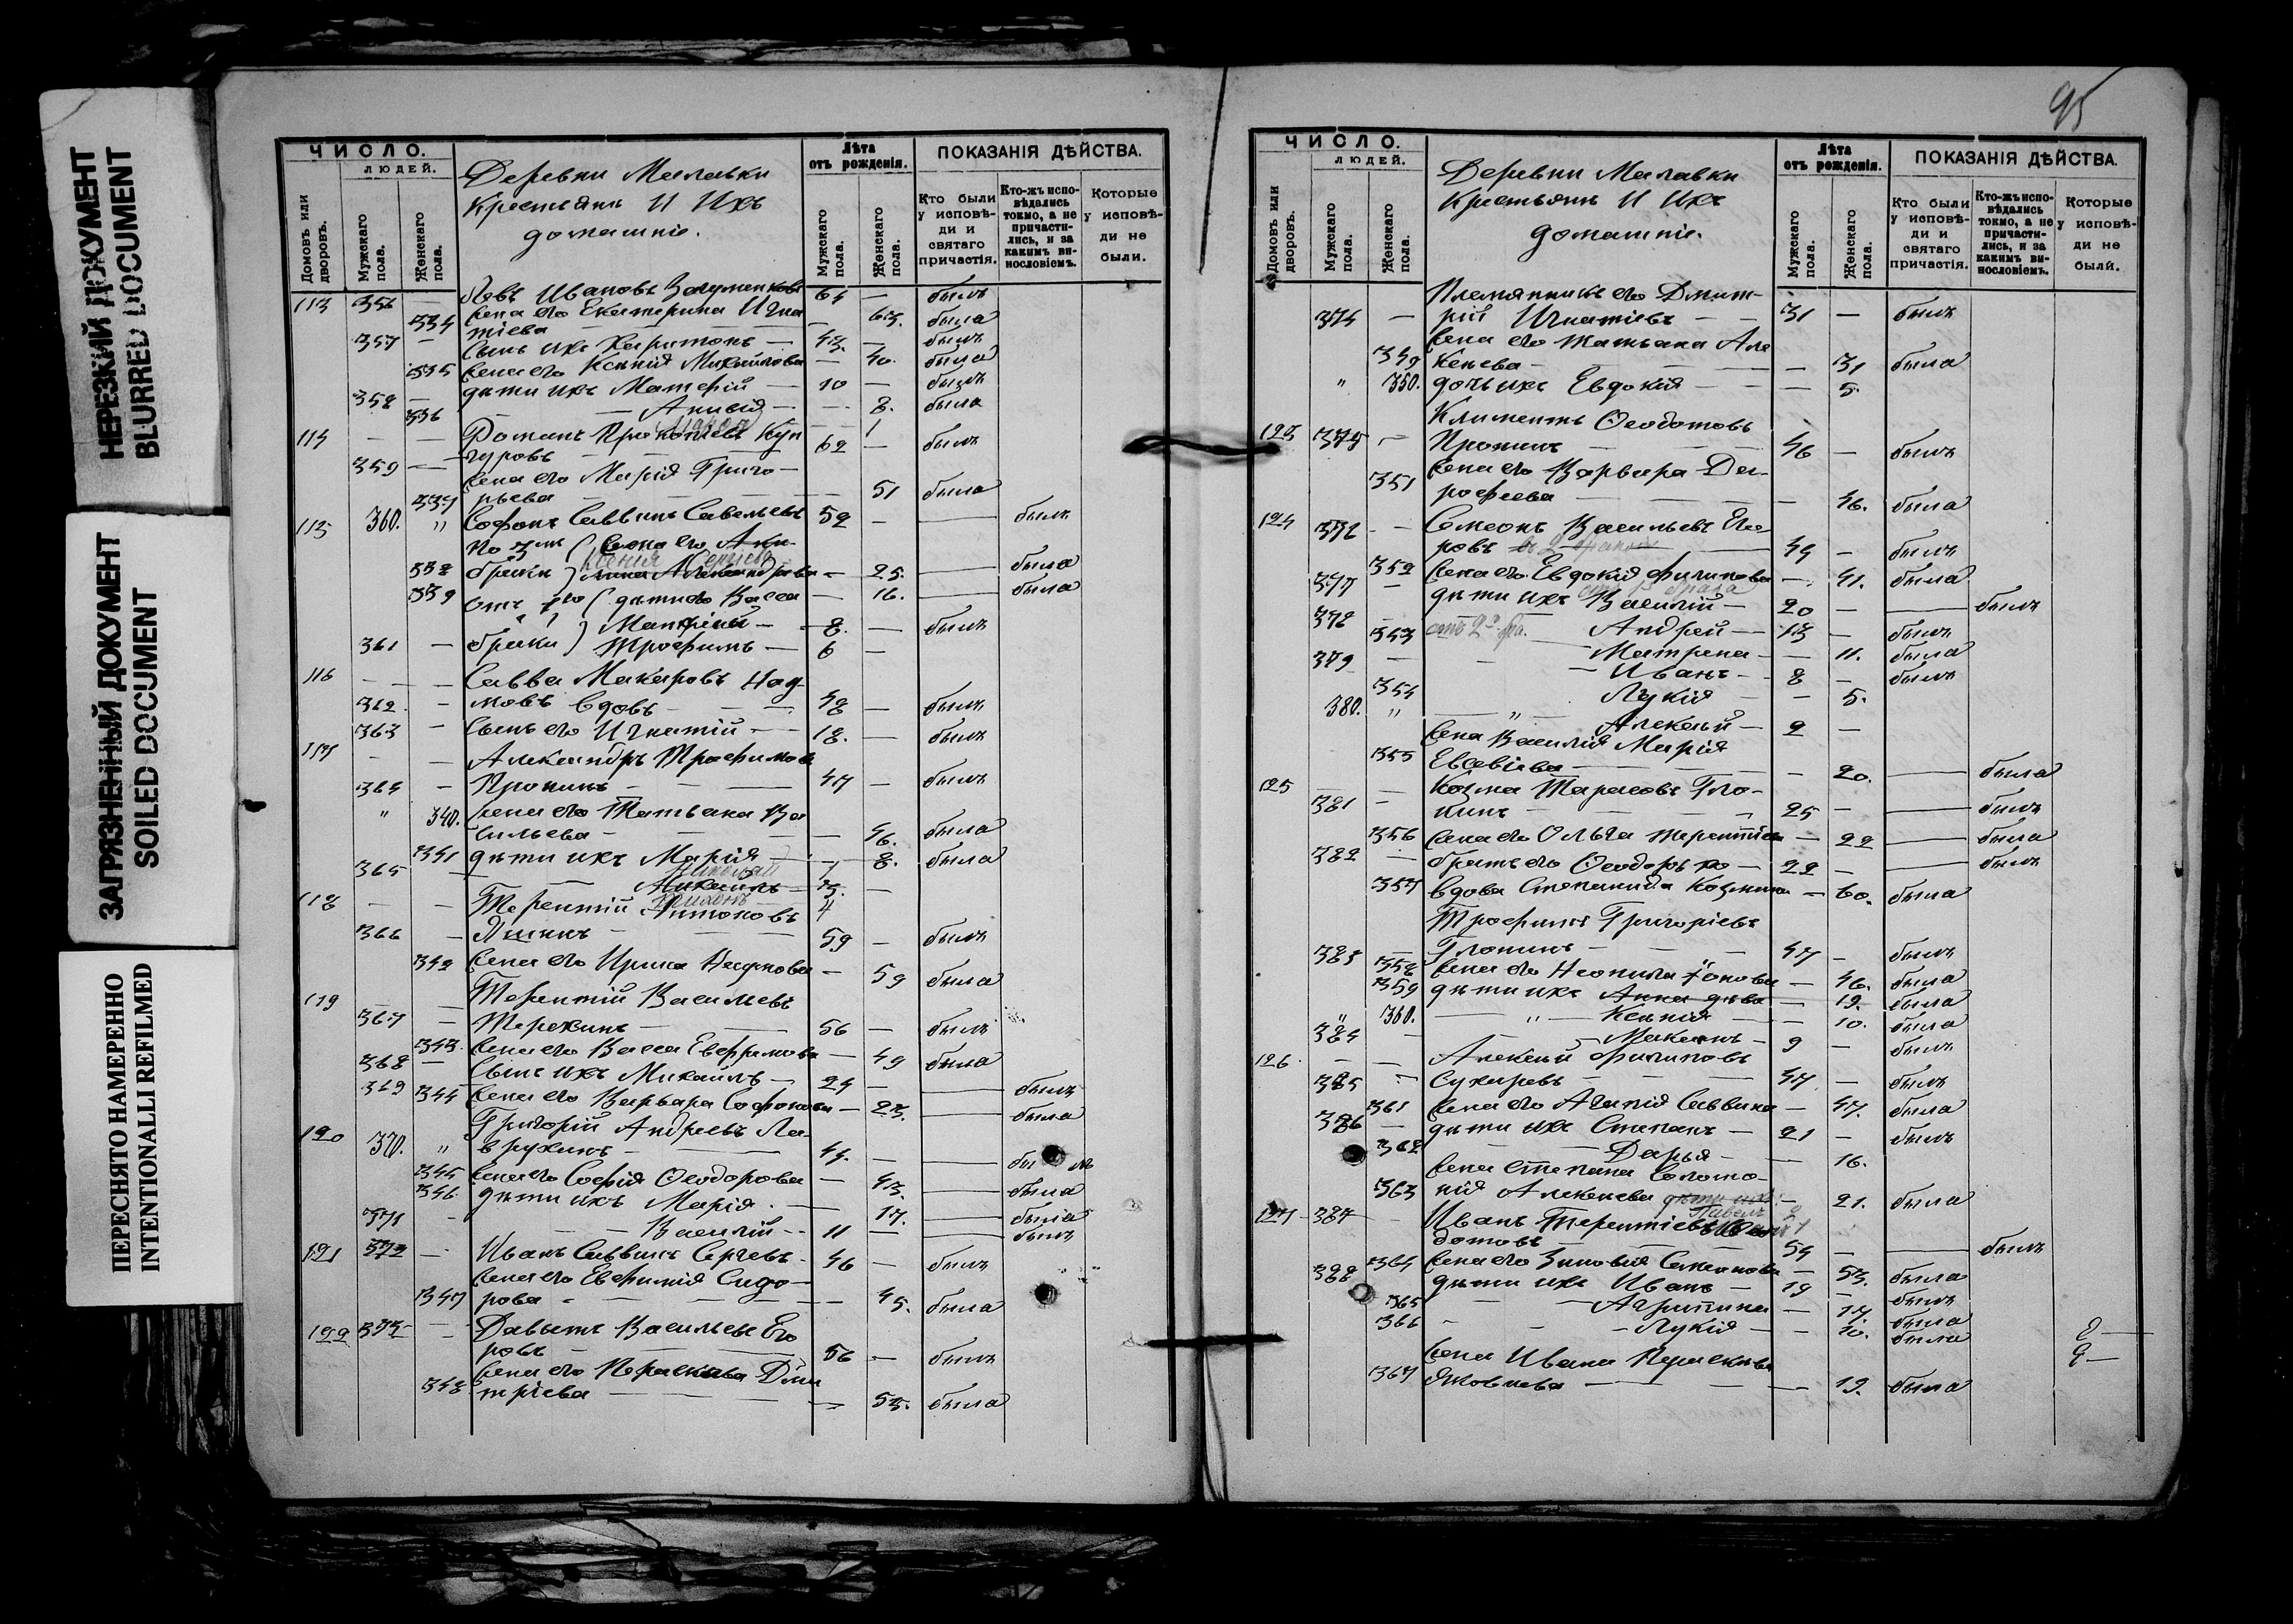 НЕРЕЗКИЙ ДОКУМЕНТ
BLURRED DOCUMENT
ЗАГРЯЗНЕННЫЙ ДОКУМЕНТ
SOILED DOCUMENT
ПЕРЕСНЯТО НАМЕРЕННО
INTENTIONALLI REFILMED
ЧИСЛО.
ЛЮДЕЙ.
Домовъ или дворовъ.
Мужскаго пола.
Женскаго пола.
Деревни Малавки
Крестьяне И Ихъ
домашніе.
Лѣта отъ рожденія.
Мужскаго пола.
Женскаго пола.
ПОКАЗАНІЯ ДѢЙСТВА.
Кто были у исповѣди и святаго причастія.
Кто-жъ исповѣдались токмо, а не причастились, и за какимъ винословіемъ.
Которые у исповѣди не были.
113 356 — Левъ Ивановъ 64 — былъ
334 жена его Екатерина Игна
тіева — 63. была
357 — сынъ ихъ Харитонъ — 43. — былъ
335 жена его Ксенія Михайлова — 40. была
358 — дѣти ихъ — 10 — былъ
336 — Анисія — 8. была
114 — — Романъ Прокопіевъ 62 — былъ
359 — жена его Марія Григо-
337 рьева — 51 была
115 360. " Софонъ Саввинъ Савельевъ 52 — — былъ
по 3мъ жена его
338 бракѣ Александрова — 25. — была
339 отъ 1го дѣти его Васса — 16. — была
8. — былъ
361 — брака Трофимъ — 6 —
116 — — Савва Макаровъ
362 — вдовъ — 48 — былъ
363 — сынъ его Игнатій — 18. — былъ
117 — — Александръ Трофимовъ
364 — Пронинъ — 47 — былъ
" 340. жена его Татьяна Ва
сильева — 46. была
341 дѣти ихъ Марія — 8. была
365 — Николай
118 — — Терентій Антоновъ
366 — 59 — былъ
342 жена его Ирина Наумова — 59 была
119 — — Терентій Васильевъ
367 — Терехинъ — 56 — былъ
343. жена его Васса Ефимова — 49 была
368 — сынъ ихъ Михаилъ — 24 — — былъ
369 344 жена его Варвара Софонова — 23. — была
120 Григорій Андреевъ Ла-
370. " врухинъ — 44. — — былъ
345 жена его Софія Ѳеодорова — 43. — была
346 дѣти ихъ Марія — 17. — была
371 — Василій — 11 — — былъ
121 372 — Иванъ Саввинъ Сергѣевъ — 46 — былъ
жена его Евфимія Сидо-
347 рова — 45. была
122 373 — Давыдъ Васильевъ Его
ровъ — 56 — былъ
жена его Параскева Дми
348 тріева — 53. была
95
ЧИСЛО.
ЛЮДЕЙ.
Домовъ или дворовъ.
Мужскаго пола.
Женскаго пола.
Деревни Малавки
Крестьяне И Ихъ
домашніе.
Лѣта отъ рожденія.
Мужскаго пола.
Женскаго пола.
ПОКАЗАНІЯ ДѢЙСТВА.
Кто были у исповѣди и святаго причастія.
Кто-жъ исповѣдались токмо, а не причастились, и за какимъ винословіемъ.
Которые у исповѣди не были.
Племянникъ его Дмит-
374 — рій Игнатіевъ — 31 — былъ
жена его Татьяна Але
349 ксѣева — 31 была
" 350. дочь ихъ Евдокія — 5.
Климентъ Ѳеодотовъ
123 375 — Пронинъ — 46 — былъ
жена его Варвара До-
351 рофеева — 46. была
124 376 — Семеонъ Васильевъ Его-
ровъ — 44 — былъ
352 жена его Евдокія Филипова — 41. была
377 — дѣти ихъ Василій — 20 — — былъ
378 отъ 2го бра. Андрей — 13 — былъ
353 Матрена — 11. была
379 — Иванъ — 8 — былъ
354 Лукія — 5.
380. " " Алексѣй — 2 —
жена Василія Марія
355 Евсевіева — 20. — была
125 — Козма Тарасовъ Гло-
381 кинъ — 25 — — былъ
356 жена его Ольга Терентіева — 22 — была
382 — братъ его Ѳеодоръ — 22 — — былъ
357 вдова Степанида Козмина — 60. была
Трофимъ Григоріевъ
383 — 47 — былъ
358 жена его Неонила — 46. была
359 дѣти ихъ Анна дѣва — 19. была
" 360. — " — Ксенія — 10. была
384 — Максимъ — 9 — былъ
126. — — Алексѣй Филиповъ
385 — Сухаревъ — 47 — былъ
361 жена его Агапія Саввина — 47. была
386 — дѣти ихъ Степанъ — 21 — былъ
362 — Дарья — 16.
жена Степана Соломо-
363 нія Алексѣева дѣти ихъ 21. была
Павелъ 2
127 387 Иванъ Терентіевъ
дотовъ — 54 — — былъ
364 жена его Зиновія Семенова — 53. была
388 дѣти ихъ Иванъ — 19 — былъ
365 — Агрипина — 17. была
366 — Лукія — 10. была
жена Ивана Параскева
367 Яковлева — 19. была